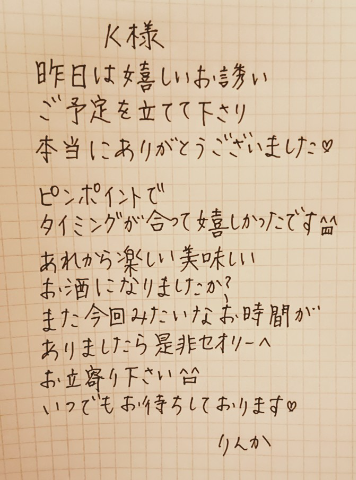 K様
昨日は嬉しいお誘い
ご予定を立てて下さり
本当にありがとうございました♡
ピンポイントで
タイミングが合って嬉しかったです^^
あれから楽しい美味しい
お酒になりましたか?
また今回みたいなお時間が
ありましたら是非セオリーへ
お立寄り下さい^^
いつでもお待ちしております♡
りんか